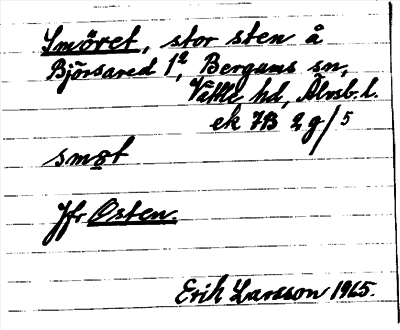 Smöret, stor sten å
Björsared 1², Bergums sn,
Vättle hd, Älvsb. l.
ek 7B 2g/5
smøt
Jfr Osten.
Erik Larsson 1965.